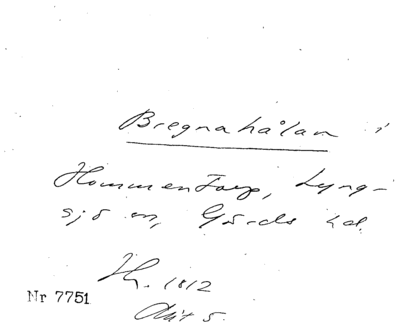 Bregnahålan i
Hommentorp, Lyng-
sjö sn, Gärds hd.
1812
Nr 7751
5.